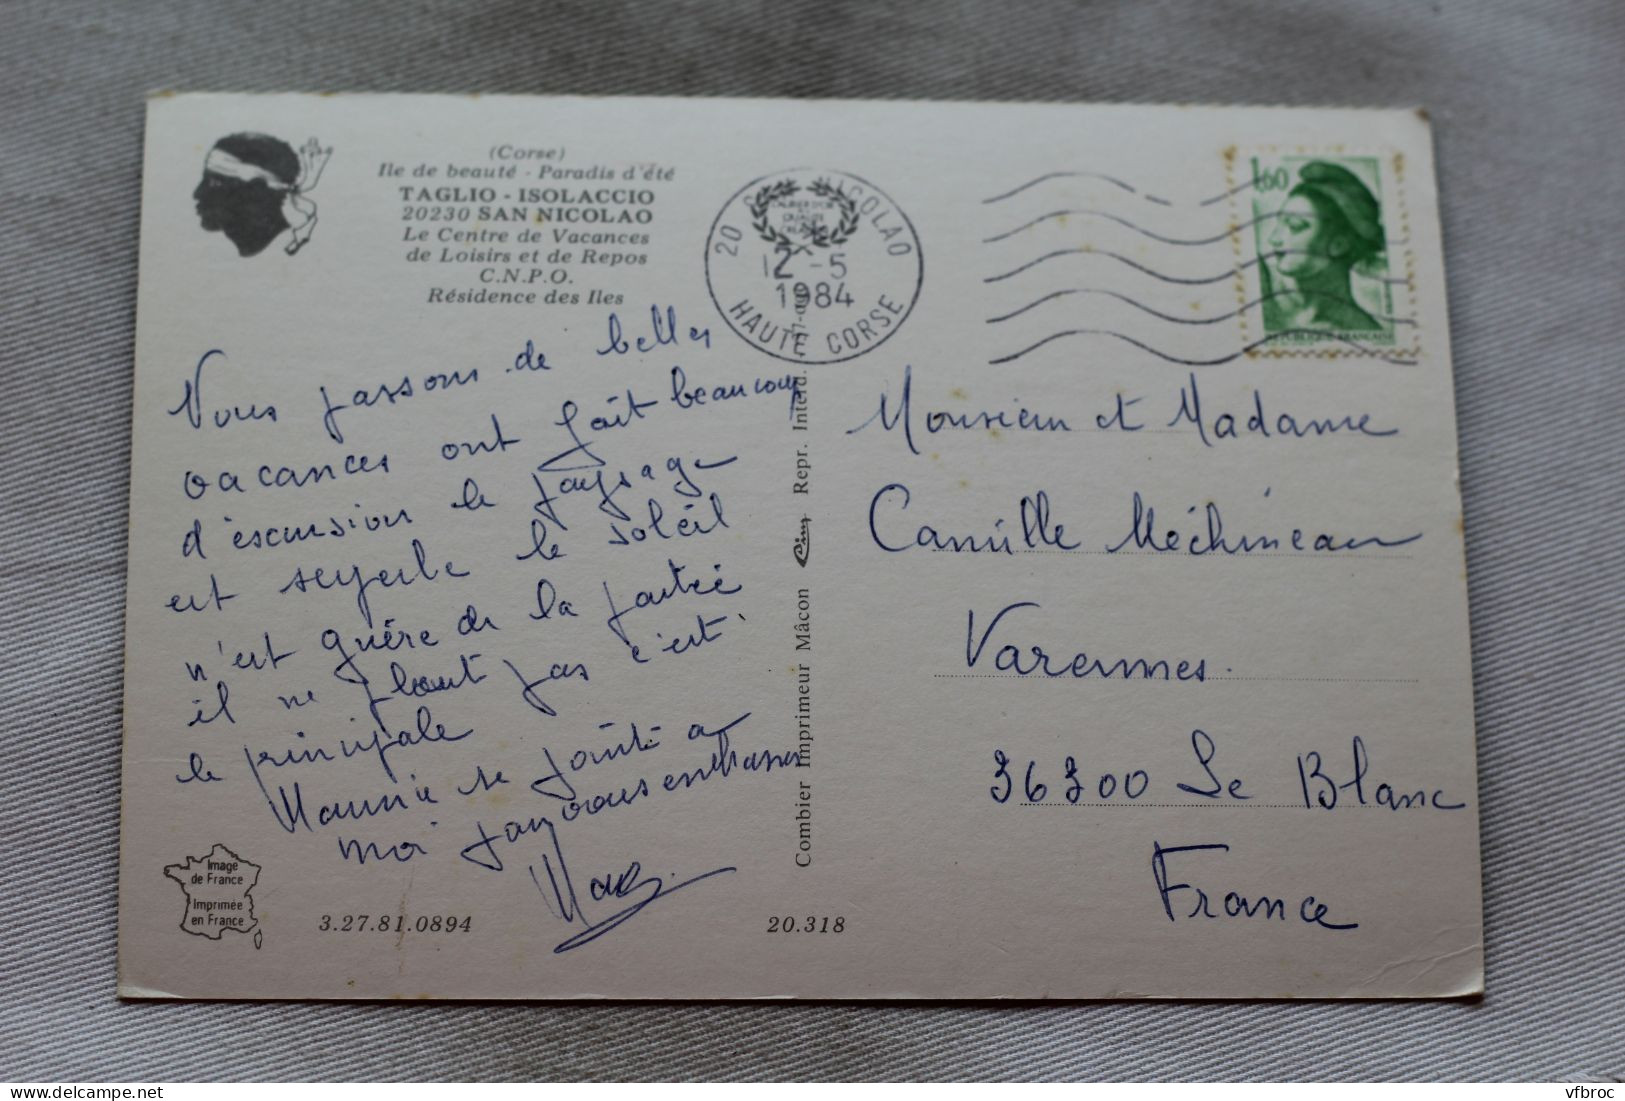 (Corse)
Ile de beauté - Paradis d'été
TAGLIO - ISOLACCIO
20230 SAN NICOLAO
Le Centre de Vacances
de Loisirs et de Repos
C.N.P.O.
Résidence des Iles
20 SAN NICOLAO
12 -5
1984
HAUTE CORSE
1,60
REPUBLIQUE FRANÇAISE
Nous passons de belles
vacances ont fait beaucoup
d'escursion le paysage
est superbe le soleil
n'est guére de la partie
il ne pleut pas c'est
le principale
Mamie se joint a
moi pour vous embrasser
Monsieur et Madame
Camille Méchineau
Varennes.
36300 Le Blanc
France
Combier Imprimeur Mâcon Cim Repr. Interd.
Image
de France
Imprimée
en France
3.27.81.0894
20.318
vfbroc